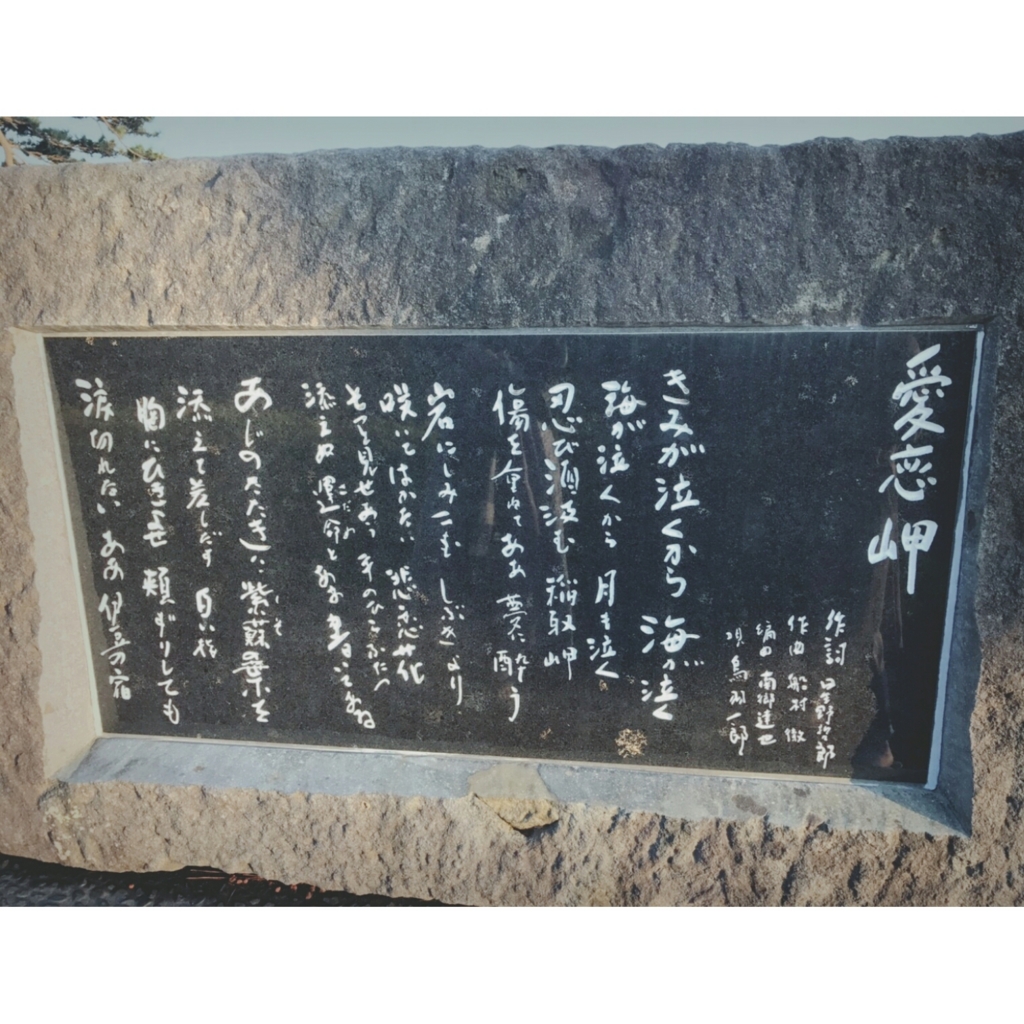 愛恋岬
作詞 星野哲郎
作曲 船村 徹
編曲 南郷達也
唄 鳥羽一郎
きみが泣くから 海が泣く
海が泣くから 月も泣く
忍び酒汲む 稲取岬
傷を重ねて ああ 夢に酔う
岩にしみこむ しぶきより
咲いてはかない 悲恋花
そっと見せあう 手のひらふたつ
添えぬ 運命と
さだめ
あじのたたきに 紫蘇葉を
しそ
添えて差しだす 白い指
胸にひきよせ 頬ずりしても
涙切れない ああ 伊豆の宿